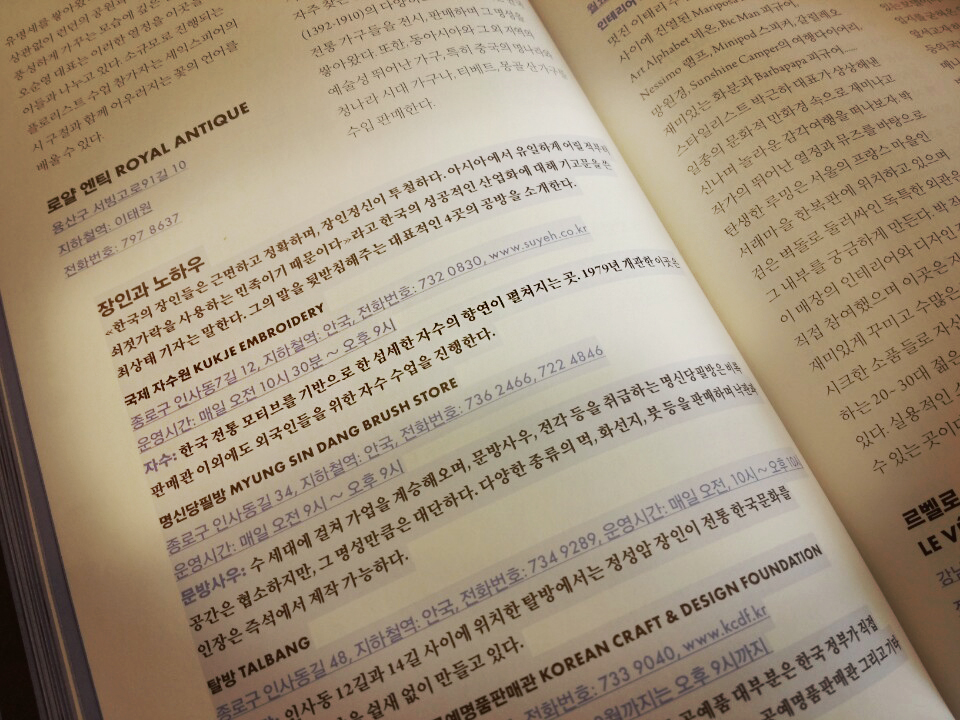 유명세를 쌓아왔
상관없이 런던의 공원과
풍성하게 가꾸는 모습에 깊은
오순영 대표는 이러한 열정을 이곳을
이들과 나누고 있다. 소규모로 진행되는
플로리스트 수업 참가자는 셰익스피어의
시 구절과 함께 어우러지는 꽃의 언어를
배울 수 있다.
로얄 엔틱 ROYAL ANTIQUE
용산구 서빙고로91길 10
지하철역: 이태원
전화번호: 797 8637
자주 찾는
(1392-1910)의 다양하
전통 가구들을 전시, 판매하며 그 명성을
쌓아왔다. 또한, 동아시아와 그 외 지역의
예술성 뛰어난 가구, 특히 중국의 명나라와
청나라 시대 가구나, 티베트, 몽골 산 가구를
수입 판매한다.
장인과 노하우
«한국의 장인들은 근면하고 정확하며, 장인정신이 투철하다. 아시아에서 유일하게 어릴 적부터
쇠젓가락을 사용하는 민족이기 때문이다»라고 한국의 성공적인 산업화에 대해 기고문을 쓴
최상태 기자는 말한다. 그의 말을 뒷받침해주는 대표적인 4곳의 공방을 소개한다.
국제 자수원 KUKJE EMBROIDERY
종로구 인사동7길 12, 지하철역: 안국, 전화번호: 732 0830, www.suyeh.co.kr
운영시간: 매일 오전 10시 30분 ~ 오후 9시
자수: 한국 전통 모티브를 기반으로 한 섬세한 자수의 향연이 펼쳐지는 곳. 1979년 개관한 이곳은
판매관 이외에도 외국인들을 위한 자수 수업을 진행한다.
명신당필방 MYUNG SIN DANG BRUSH STORE
종로구 인사동길 34, 지하철역: 안국, 전화번호: 736 2466, 722 4846
운영시간: 매일 오전 9시 ~ 오후 9시
문방사우: 수 세대에 걸쳐 가업을 계승해오며, 문방사우, 전각 등을 취급하는 명신당필방은 비록
공간은 협소하지만, 그 명성만큼은 대단하다. 다양한 종류의 먹, 화선지, 붓 등을 판매하며 낙관과
인장은 즉석에서 제작 가능하다.
탈방 TALBANG
종로구 인사동길 48, 지하철역: 안국, 전화번호: 734 9289, 운영시간: 매일 오전, 10시~ 오후 10시
인사동 12길과 14길 사이에 위치한 탈방에서는 정성암 장인이 전통 한국문화를
쉴새 없이 만들고 있다.
공예명품판매관 KOREAN CRAFT & DESIGN FOUNDATION
전화번호: 733 9040, www.kcdf.kr
월까지는 오후 9시까지
공예품 대부분은 한국 정부가 직접
공예명품판매관 그리고
인테리어
멋진 이태리 수
사이에 진열된 Mariposa
Art Alphabet 네온, Bic Man 피규어,
Nessimo 램프, Minipod 스피커, 갈릴레오
망원경, Sunshine Camper의 여행다이어리,
재미있는 화분과 Barbapapa 피규어.....
스타일리스트 박근하 대표가 상상해낸
일종의 문화적 만화경 속으로 재미나고
신나며 놀라운 감각여행을 떠나보자. 박
작가의 뛰어난 열정과 뮤즈를 바탕으로
탄생한 루밍은 서울의 프랑스 마을인
서래마을 한복판에 위치하고 있으며
검은 벽돌로 둘러싸인 독특한 외관은
그 내부를 궁금하게 만든다. 박 작
이 매장의 인테리어와 디자인 작
직접 참여했으며 이곳은 지
재미있게 꾸미고 수많은
시크한 소품들로 자신
하는 20~30대 젊은
있다. 실용적인 소
수 있는 곳이다
르벨로
LE V
강남